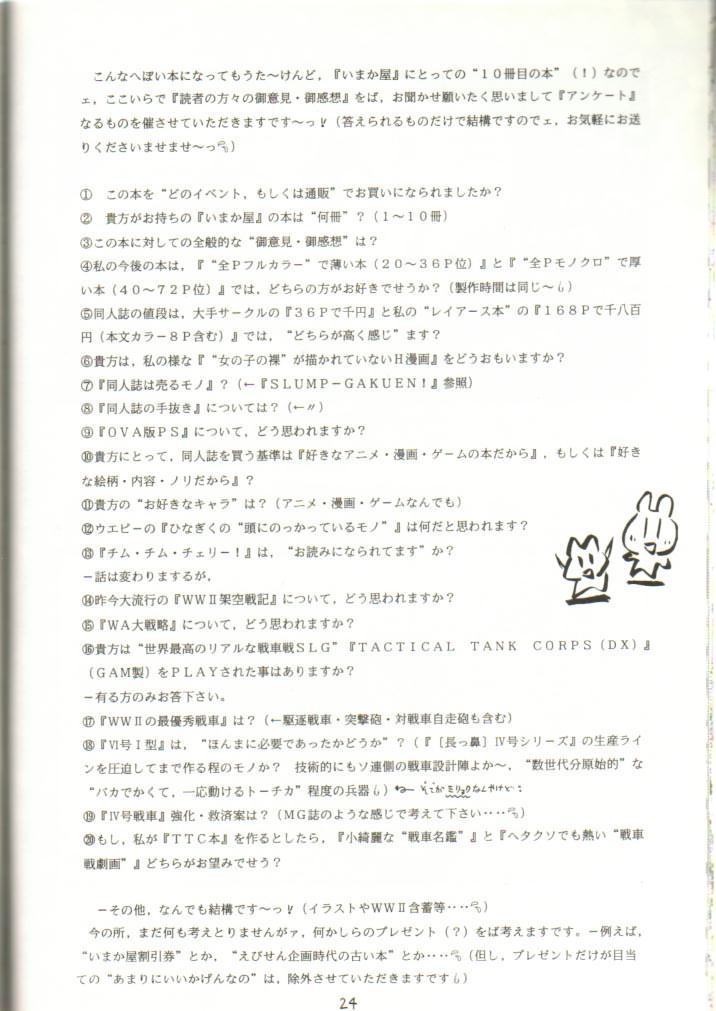 こんなへぽい本になってもうた～けんど，『いまか屋』にとっての“１０冊目の本”（！）なので
ェ，ここいらで『読者の方々の御意見・御感想』をば，お聞かせ願いたく思いまして『アンケート』
なるものを催させていただきますです～っ！（答えられるものだけで結構ですのでェ，お気軽にお送
りくださいませませ～っ）
①　この本を“どのイベント，もしくは通販”でお買いになられましたか？
②　貴方がお持ちの『いまか屋』の本は“何冊”？（１～１０冊）
③この本に対しての全般的な“御意見・御感想”は？
④私の今後の本は，『“全Ｐフルカラー”で薄い本（２０～３６Ｐ位）』と『“全Ｐモノクロ”で厚
い本（４０～７２Ｐ位）』では，どちらの方がお好きでせうか？（製作時間は同じ～）
⑤同人誌の値段は，大手サークルの『３６Ｐで千円』と私の“レイアース本”の『１６８Ｐで千八百
円（本文カラー８Ｐ含む）』では，“どちらが高く感じ”ます？
⑥貴方は，私の様な『“女の子の裸”が描かれていないＨ漫画』をどうおもいますか？
⑦『同人誌は売るモノ』？（←『ＳＬＵＭＰ－ＧＡＫＵＥＮ！』参照）
⑧『同人誌の手抜き』については？（←〃）
⑨『ＯＶＡ版ＰＳ』について，どう思われますか？
⑩貴方にとって，同人誌を買う基準は『好きなアニメ・漫画・ゲームの本だから』，もしくは『好き
な絵柄・内容・ノリだから』？
⑪貴方の“お好きなキャラ”は？（アニメ・漫画・ゲームなんでも）
⑫ウエピーの『ひなぎくの“頭にのっかっているモノ”』は何だと思われます？
⑬『チム・チム・チェリー！』は，“お読みになられてます”か？
－話は変わりまするが，
⑭昨今大流行の『ＷＷⅡ架空戦記』について，どう思われますか？
⑮『ＷＡ大戦略』について，どう思われますか？
⑯貴方は“世界最高のリアルな戦車戦ＳＬＧ”『ＴＡＣＴＩＣＡＬ　ＴＡＮＫ　ＣＯＲＰＳ（ＤＸ）』
（ＧＡＭ製）をＰＬＡＹされた事はありますか？
－有る方のみお答下さい。
⑰『ＷＷⅡの最優秀戦車』は？（←駆逐戦車・突撃砲・対戦車自走砲も含む）
⑱『Ⅵ号Ⅰ型』は，“ほんまに必要であったかどうか”？（『〔長っ鼻〕Ⅳ号シリーズ』の生産ライ
ンを圧迫してまで作る程のモノか？　技術的にもソ連側の戦車設計陣よか～，“数世代分原始的”な
“バカでかくて，一応動けるトーチカ”程度の兵器）←そこがミリョクなんやけど：
⑲『Ⅳ号戦車』強化・救済案は？（ＭＧ誌のような感じで考えて下さい‥‥）
⑳もし，私が『ＴＴＣ本』を作るとしたら，『小綺麗な“戦車名鑑”』と『ヘタクソでも熱い“戦車
戦劇画”』どちらがお望みでせう？
－その他，なんでも結構です～っ！（イラストやＷＷⅡ含蓄等‥‥）
今の所，まだ何も考えとりませんがァ，何かしらのプレゼント（？）をば考えますです。－例えば，
“いまか屋割引券”とか，“えびせん企画時代の古い本”とか‥‥（但し，プレゼントだけが目当
ての“あまりにいいかげんなの”は，除外させていただきますです）
24